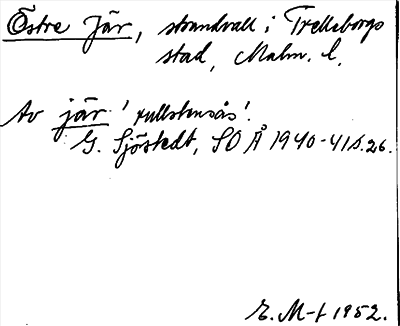 Östre Jär, strandvall i Trelleborgs
stad, Malm. l.
Av jär 'rullstensås'.
G. Sjöstedt, SOÅ 1940-41 s. 26.
E. M-t 1952.